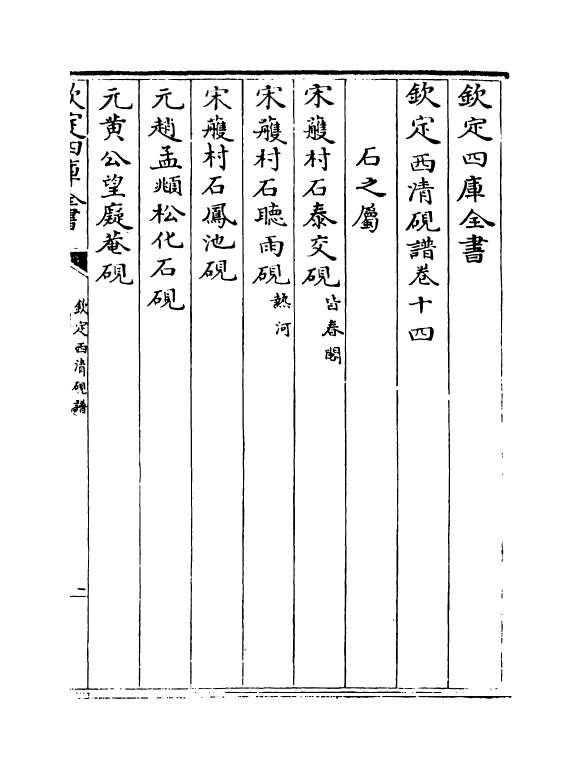 欽定四庫全書
欽定西清硯譜卷十四
石之屬
宋蘿村石泰交硯 皆春閣
宋蘿村石聽雨硯 熱河
宋蘿村石鳳池硯
元趙孟頫松化石硯
元黄公望癡菴硯
欽定四庫全書
欽定西清硯譜
一